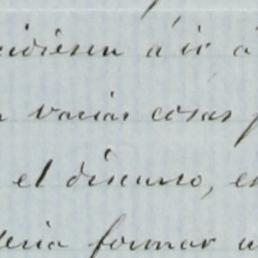 cidiesen á ir á
varias cosas
el discurso, e
deria formar u